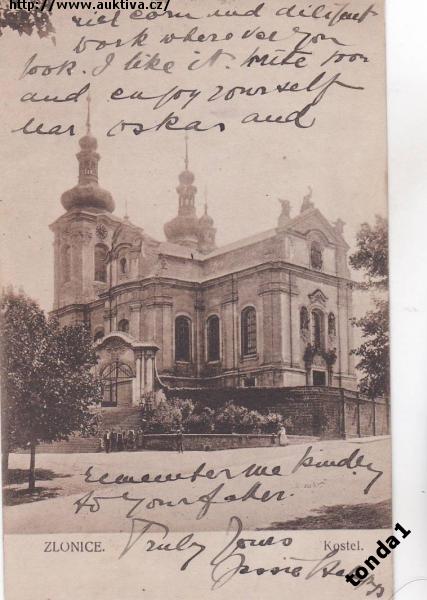 http://www.auktiva.cz/
corn and diligent
work where ever you
look. I like it. write soon
and enjoy yourself
near oskar and
remember me kindley
to your father.
ZLONICE.
Truly Yours
Kostel.
tonda1